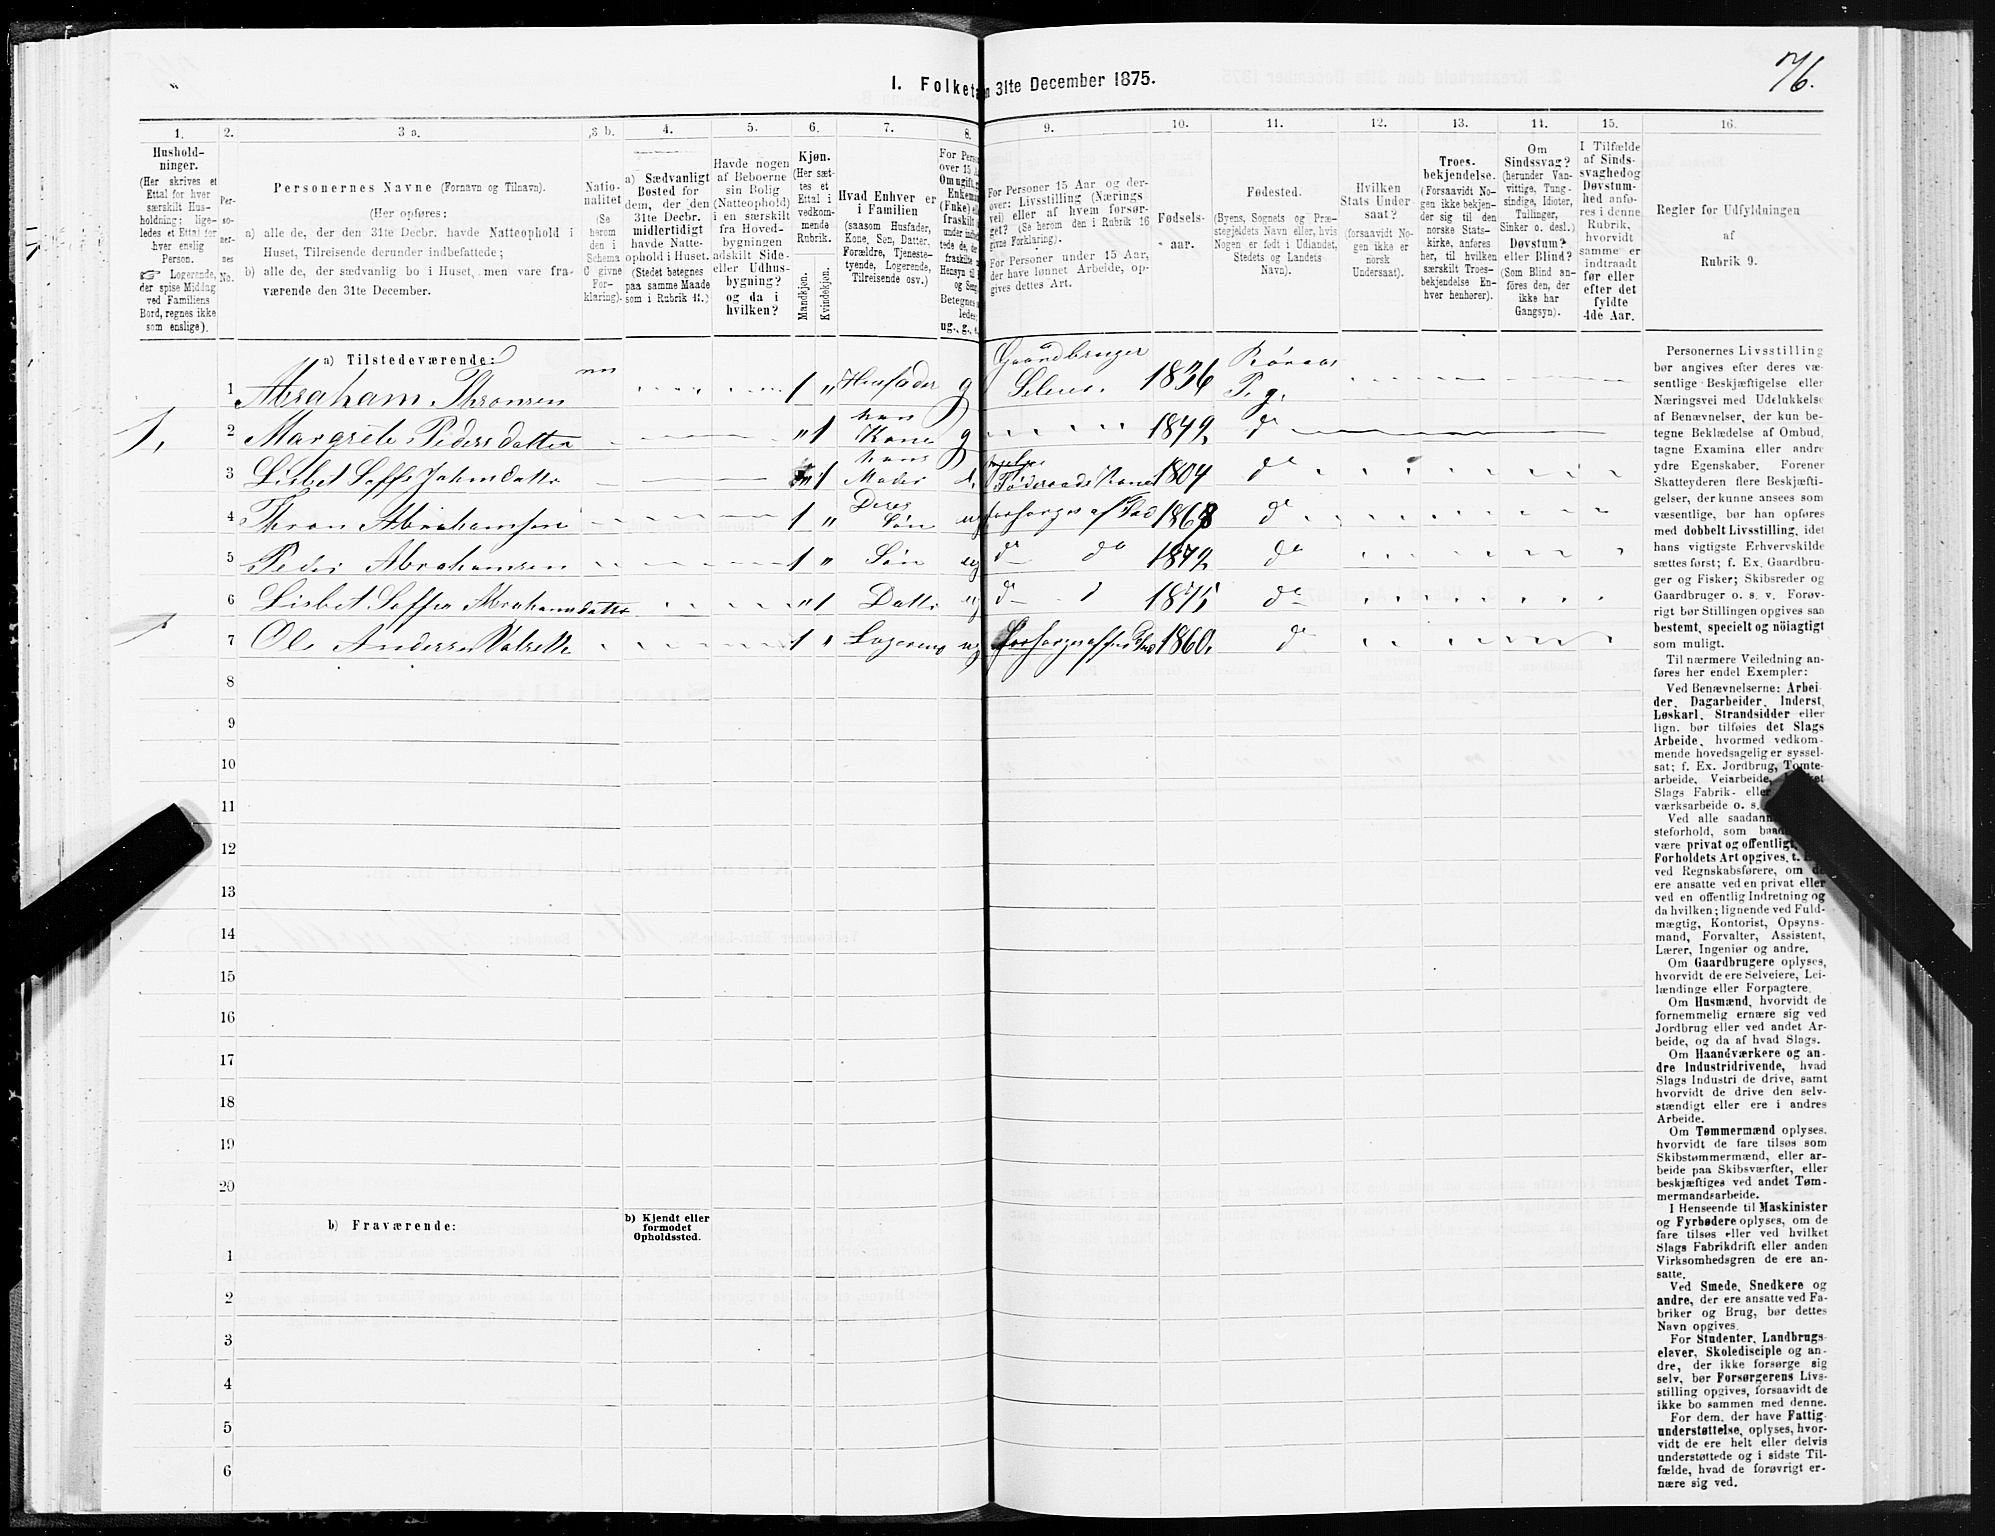 76.
I. Folketæ n 31te December 1875.
1. 2. 3 a. 3 b. 4. 5. 6. 7. 8. 9. 10. 11. 12. 13. 14. 15. 16.
Hushold-
ninger.
(Her skrives et
Ettal for hver
særskilt Hus-
holdning; lige-
ledes et Ettal for
hver enslig
Person.
☞ Logerende,
der spise Middag
ved Familiens
Bord, regnes ikke
som enslige).
Per-
so-
ner-
nes
No.
Personernes Navne (Fornavn og Tilnavn).
(Her opføres:
a) alle de, der den 31te Decbr. havde Natteophold i
Huset, Tilreisende derunder indbefattede;
b) alle de, der sædvanlig bo i Huset, men vare fra-
værende den 31te December.
Natio-
nalitet
(Se
herom
den i
Schema
C givne
For-
klaring).
a) Sædvanligt
Bosted for
dem, der den
31te Decbr.
midlertidigt
havde Natte-
ophold i Huset.
(Stedet betegnes
paa samme Maade
som i Rubrik 11.)
Havde nogen
af Beboerne
sin Bolig
(Natteophold)
i en særskilt
fra Hoved-
bygningen
adskilt Side-
eller Udhus-
bygning?
og da i
hvilken?
Kjøn.
(Her sæt-
tes et
Ettal i
vedkom-
mende
Rubrik.
Mandkjøn.
Kvindekjøn.
Hvad Enhver er
i Familien
(saasom Husfader,
Kone, Søn, Datter,
Forældre, Tjeneste-
tyende, Logerende,
Tilreisende osv.)
For Perso
over 15 A
Om ugift,
Enkema
(Enke) el
fraskilt
under indb
tede de, de
fraskilte
Hensyn til
og Seng
Betegnes
ledes:
ug., g., e.
For Personer 15 Aar og der-
over: Livsstilling (Nærings
vei) eller af hvem forsør-
get? (Se herom den i Rubrik 16
givne Forklaring).
For Personer under 15 Aar,
der have lønnet Arbeide, op-
gives dettes Art.
Fødsels-
aar.
Fødested.
(Byens, Sognets og Præ-
stegjeldets Navn eller, hvis
Nogen er født i Udlandet,
Stedets og Landets
Navn).
Hvilken
Stats Under
saat?
(forsaavidt No-
gen ikke er
norsk
Undersaat).
Troes-
bekjendelse.
(Forsaavidt No-
gen ikke bekjen-
der sig til den
norske Stats-
kirke, anføres
her, til hvilken
særskilt Troes-
bekjendelse En-
hver henhører).
Om
Sindssvag?
(herunder Van-
vittige, Tung-
sindige, Idioter,
Tullinger,
Sinker o. desl.)
Døvstum?
eller Blind?
(Som Blind an-
føres den, der
ikke har
Gangsyn).
I Tilfælde
af Sinds-
svaghed og
Døvstum-
hed anfø-
res i denne
Rubrik,
hvorvidt
samme er
indtraadt
før eller
efter det
fyldte
4de Aar.
Regler for Udfyldningen
af
Rubrik 9.
a) Tilstedeværende:
1 Abraham Thronsen nn 1 " Husfader g Gaardbruger Seleier 1836 Røraas P. g.
2 Margrete Pedersdatter " 1 hans Kone g 1849 do
3 Lisbet Soffi Johnsdatter " 1 hans Moder Føderaads Kone 1804 do
4 Thron Abrahamsen 1 " Deres Søn ug forsørges af Fad 1868 do
5 Peder Abrahamsen 1 " Søn ug do do 1872 do
6 Lisbet Soffie Abrahamsdatter " 1 Datter ug do d 1875 do
7 Ole Andersen 1 " Logerende ug 1860. do
8
9
10
11
12
13
14
15
16
17
18
19
20
b) Fraværende:
b) Kjendt eller
formodet
Opholdssted.
1
2
3
4
5
6
Personernes Livsstilling
bør angives efter deres væ-
sentlige Beskjæftigelse eller
Næringsvei med Udelukkelse
af Benævnelser, der kun be-
tegne Beklædelse af Ombud,
tagne Examina eller andre
ydre Egenskaber. Forener
Skatteyderen flere Beskjæfti-
gelser, der kunne ansees som
væsentlige, bør han opføres
med dobbelt Livsstilling, idet
hans vigtigste Erhvervskilde
sættes først; f. Ex. Gaardbru-
ger og Fisker; Skibsreder og
Gaardbruger o. s. v. Forøv-
rigt bør Stillingen opgives saa
bestemt, specielt og nöiagtigt
som muligt.
Til nærmere Veiledning an-
føres her endel Exempler:
Ved Benævnelserne: Arbei-
der, Dagarbeider, Inderst,
Løskarl, Strandsidder eller
lign. bør tilføies det Slags
Arbeide, hvormed vedkom-
mende hovedsagelig er syssel-
sat; f. Ex. Jordbrug, Tomte-
arbeide, Veiarbeide, ket
Slags Fabrik- eller
værksarbeide o. s.
Ved alle saadann
steforhold, som baad
være privat og offentligt,
Forholdets Art opgives, t.
ved Regnskabsførere, om de
ere ansatte ved en privat eller
ved en offentlig Indretning og
da hvilken; lignende ved Fuld-
mægtig, Kontorist, Opsyns-
mand, Forvalter, Assistent,
Lærer, Ingeniør og andre.
Om Gaardbrugere oplyses,
hvorvidt de ere Selveiere, Lei-
lændinge eller Forpagtere.
Om Husmænd, hvorvidt de
fornemmelig ernære sig ved
Jordbrug eller ved andet Ar-
beide, og da af hvad Slags.
Om Haandværkere og an-
dre Industridrivende, hvad
Slags Industri de drive, samt
hvorvidt de drive den selv-
stændigt eller ere i andres
Arbeide.
Om Tømmermænd oplyses,
hvorvidt de fare tilsøs som
Skibstømmermænd, eller ar-
beide paa Skibsværfter, eller
beskjæftiges ved andet Tøm-
mermandsarbeide.
I Henseende til Maskinister
og Fyrbødere oplyses, om de
fare tilsøs eller ved hvilket
Slags Fabrikdrift eller anden
Virksomhedsgren de ere an-
satte.
Ved Smede, Snedkere og
andre, der ere ansatte ved Fa-
briker og Brug, bør dettes
Navn opgives.
For Studenter, Landbrugs-
elever, Skoledisciple og an-
dre, der ikke forsørge sig
selv, bør Forsørgerens Livs-
stilling opgives, forsaavidt de
ikke bo sammen med denne.
For dem, der have Fattig-
understøttelse, oplyses, hvor-
vidt de ere helt eller delvis
understøttede og i sidste Til-
fælde, hvad de forøvrigt er-
nære sig ved.